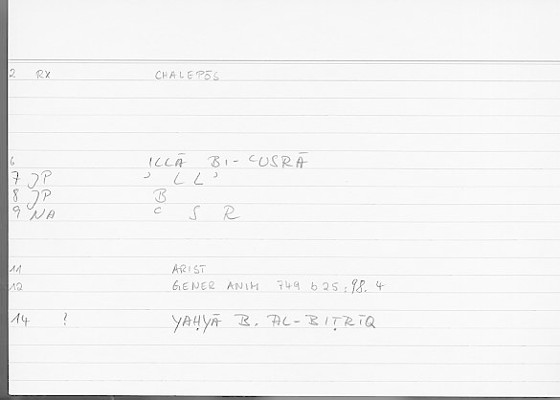 2 RX CHALEPŌS
6 ILLĀ BI-ʿUSRĀ
7 JP ʾ L L ʾ
8 JP B
9 NA ʿ S R
11 ARIST
12 GENER ANIM 749 b 25 : 98.4
14 ? YAḤYĀ B. AL-BIṬRĪQ